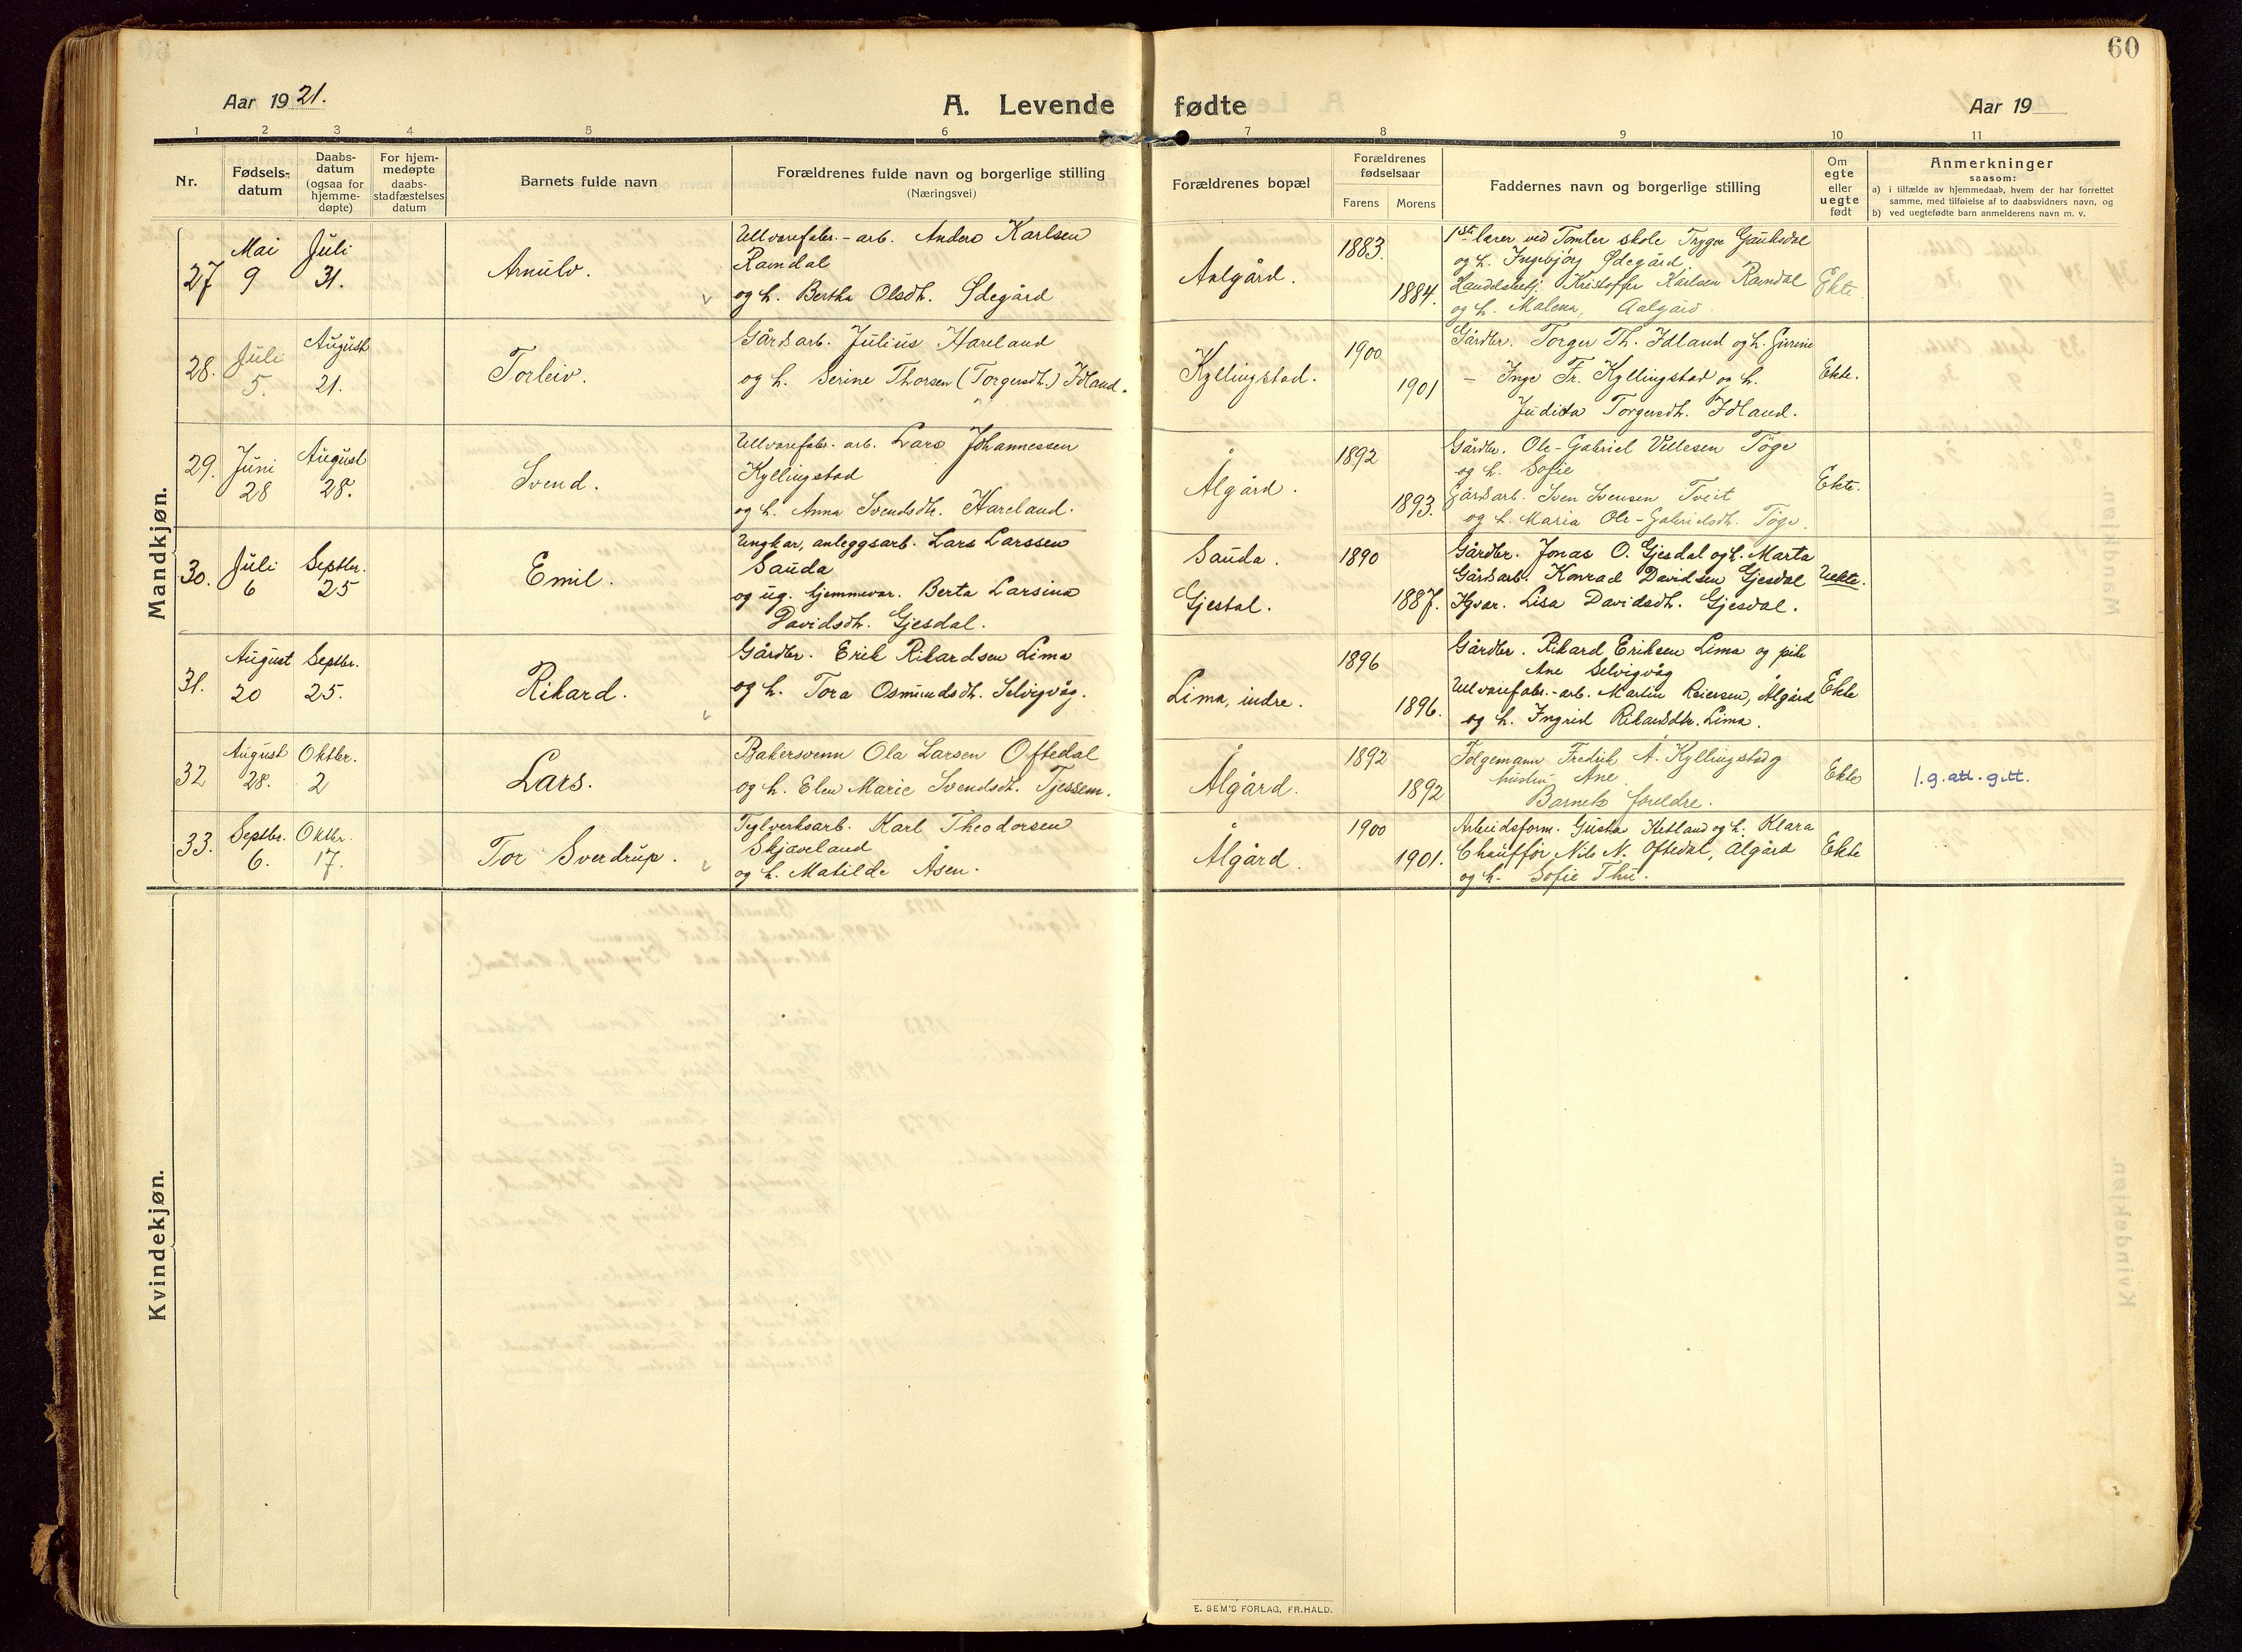 60
Aar 1921.
A. Levende fødte
Aar 19
1 2 3 4 5 6 7 8 9 10 11
Nr.
Fødsels-
datum
Daabs-
datum
(ogsaa for
hjemme-
døpte)
For hjem-
medøpte
daabs-
stadfæstelses
datum
Barnets fulde navn
Forældrenes fulde navn og borgerlige stilling
(Næringsvei)
Forældrenes bopæl
Forældrenes
fødselsaar
Farens Morens
Faddernes navn og borgerlige stilling
Om
egte
eller
uegte
født
Anmerkninger
saasom:
a) i tilfælde av hjemmedaab, hvem der har forrettet
samme, med tilføielse av to daabsvidners navn, og
b) ved uegtefødte barn anmelderens navn m. v.
Mandkjøn.
27
Mai
9
Juli
31.
Arnulv.
Ullvarefabr.-arb. Anders Karlsen
Ramdal
og h. Bertha Olsdh. Ødegård
Aalgård.
1883.
1884.
1ste lærer ved Tomter skole Trygve Gauksdal
og h. Ingebjørg Ødegård
Handelsbetj. Kristoffer Karlsen Ramdal
og h. Malena, Aalgård.
Ekte.
28.
Juli
5.
August
21.
Torleiv.
Gårdsarb. Julius Hareland
og h. Serine Thorsen (Torgersdh.) Idland.
Kyllingstad.
1900
1901
Gårdbr. Torger Th. Idland og h. Gurine
- Inge Fr. Kyllingstad og h.
Judita Torgersdh. Idland.
Ekte.
29.
Juni
28
August
28.
Svend.
Ullvarefabr. arb. Lars Johannessen
Kyllingstad
og h. Anna Svendsdtr. Hareland.
Ålgård.
1892
1893.
Gårdbr. Ole-Gabriel Villesen Tøge
og h. Sofie
Gårdsarb. Sven Svensen Tveit
og h. Maria Ole-Gabrielsdh. Tøge.
Ekte.
30.
Juli
6
Septbr.
25
Emil.
Ungkar, anleggsarb. Lars Larssen
Sauda
og ug. hjemmevær. Berta Larsina
Davidsdh. Gjesdal.
Sauda.
Gjestal.
1890
1887.
Gårdbr. Jonas O. Gjesdal og h. Marta
Gårdsarb. Konrad Davidsen Gjesdal
Hjvær. Lisa Davidsdh. Gjesdal.
Uekte.
31.
August
20
Septbr.
25.
Rikard.
Gårdbr. Erik Rikardsen Lima
og h. Tora Osmundsdh. Selvigvåg.
Lima, indre.
1896
1896.
Gårdbr. Rikard Eriksen Lima og pike
Ane Selvigvåg
Ullvarefabr.-arb. Martin Reiersen, Ålgård
og h. Ingrid Rikardsdtr. Lima.
Ekte
32
August
28.
Oktbr.
2
Lars.
Bakersvenn Ola Larsen Oftedal
og h. Elen Marie Svendsdt. Tjessem.
Ålgård.
1892
1892
Folgemann Fredrik A. Kyllingstad og
hustru Ane.
Barnets foreldre.
Ekte
l.g.att.gitt.
33.
Septbr.
6.
Oktbr.
17.
Tor Sverdrup.
Teglverksarb. Karl Theodorsen
Skjæveland
og h. Matilde Åsen.
Ålgård.
1900
1901.
Arbeidsform. Gusta Hetland og h. Klara
Chauffør Nils N. Oftedal, Ålgård
og h. Sofie Thu.
Ekte
Kvindekjøn.
E. SEM'S FORLAG, FR.HALD.